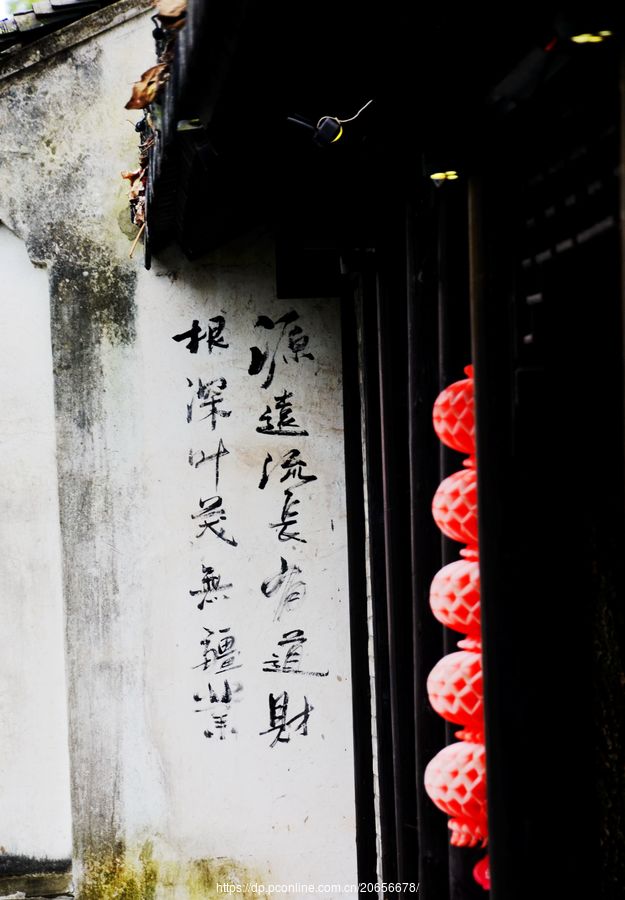 源遠流長有道財
根深叶茂無疆業
https://dp.pconline.com.cn/20656678/